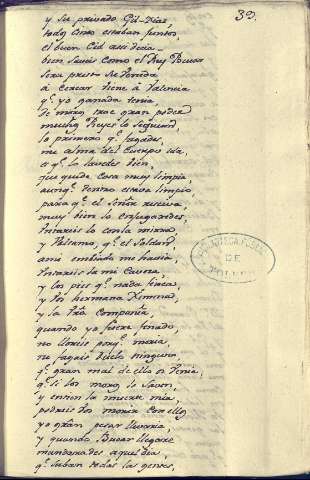 39.
y su privado Gil-Diaz,
todos cinco estaban juntos,
el buen Cid assi decia
bien saveis como el Rey Bucar
sera presto de venida
à cercar viene à Valencia
q.e yo ganada tenia,
de moros trae gran poder
muchos Reyes lo seguian,
lo primero q.e fagades
me alma del cuerpo ida,
es q.e lo lavedes bien,
que quede cosa muy limpia
aunq.e dentro estava limpio
para q.e el Señor reciva,
muy bien lo enjugaredes,
untareis lo con la mirra
y balsamo, q.e el Soldan
à mi embiado me havia,
untareis la mi Caveza,
y los pies q.e nada finca,
y vos hermana Ximena
y la vra Compañia,
quando yo fuere finado,
no lloreis porq.e moria,
ni fagais duelo ninguno,
q.e gran mal de ello os venia,
q.e si los moros lo saven,
y entien la muerte mia,
podreis vos morir con ellos
yo gran pesar llevaria,
y quando Bucar llegare
mandaredes aquel dia,
q.e suban todas las gentes,
BIBLIOTECA PUBL.
DE
TOLEDO